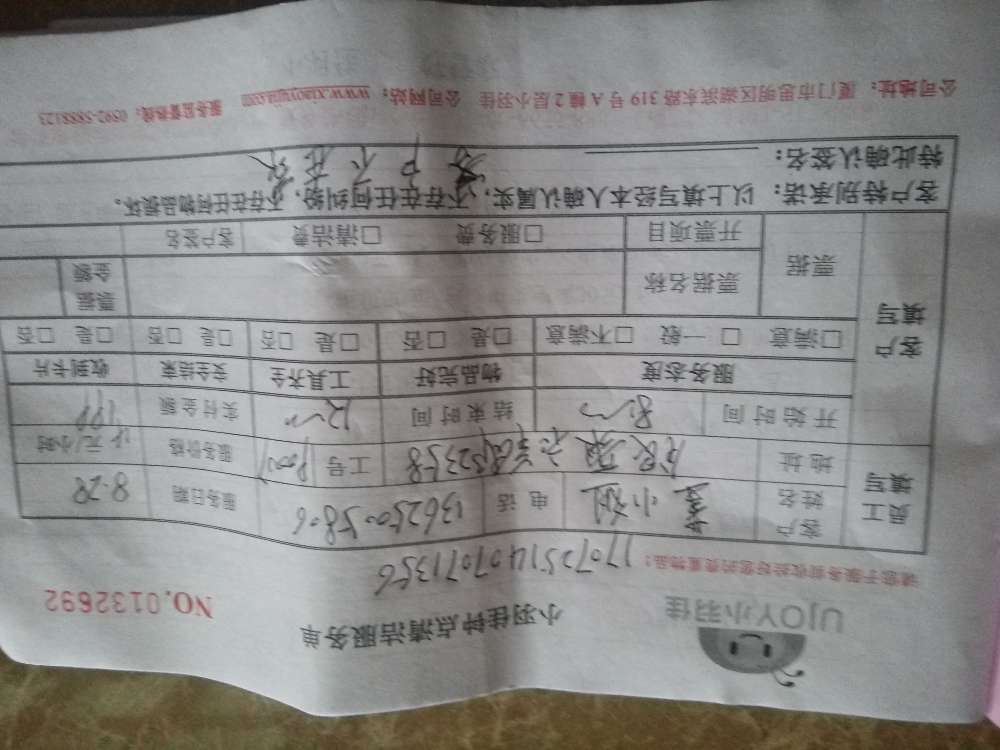 UjOY小羽佳
小羽佳钟点清洁服务单
NO.0132692
请您于服务前收拾好您的贵重物品：
17072514070713556
员工填写 客户姓名 小姐 电话 服务日期 8.29
地址 工号 服务价格 元/小时
开始时间 8: 结束时间 12 实付金额
客户填写 服务态度 物品完好 工具齐全 安全结束 收到卡片
□满意 □一般 □不满意 □是 □否 □是 □否 □是 □否 □是 □否
票据 票据名称 票据金额
开票项目 □服务费 □清洁费 客户签名
客户特别承诺：以上填写经本人确认属实，不存在任何纠纷，不存在任何物品损坏。
特此确认签名： 客户不在家
公司地址：厦门市思明区湖滨东路319号A幢2层小羽佳 公司网站：www.xiaoyujia.com 服务监督热线：0592-5888123